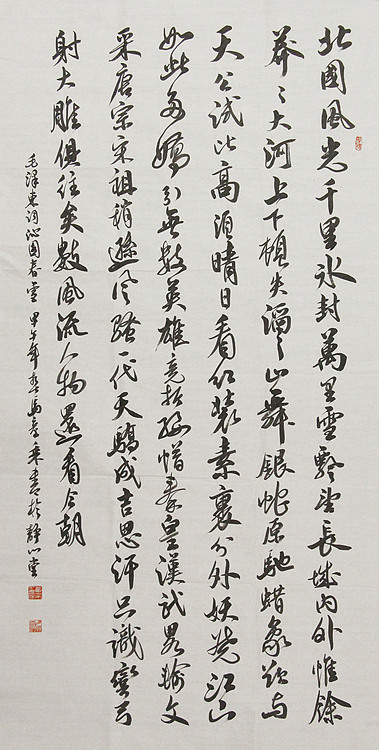 北國風光千里冰封萬里雪飄望長城內外惟餘
莽〻大河上下頓失滔〻山舞銀蛇原馳蜡象欲与
天公試比高須晴日看红裝素裹分外妖嬈江山
如此多嬌引無數英雄竞折腰惜秦皇漢武畧输文
采唐宗宋祖稍遜风騷一代天驕成吉思汗只識彎弓
射大雕俱往矣數風流人物還看今朝
毛澤東詞沁園春雪 甲午年冬馬書於靜心堂